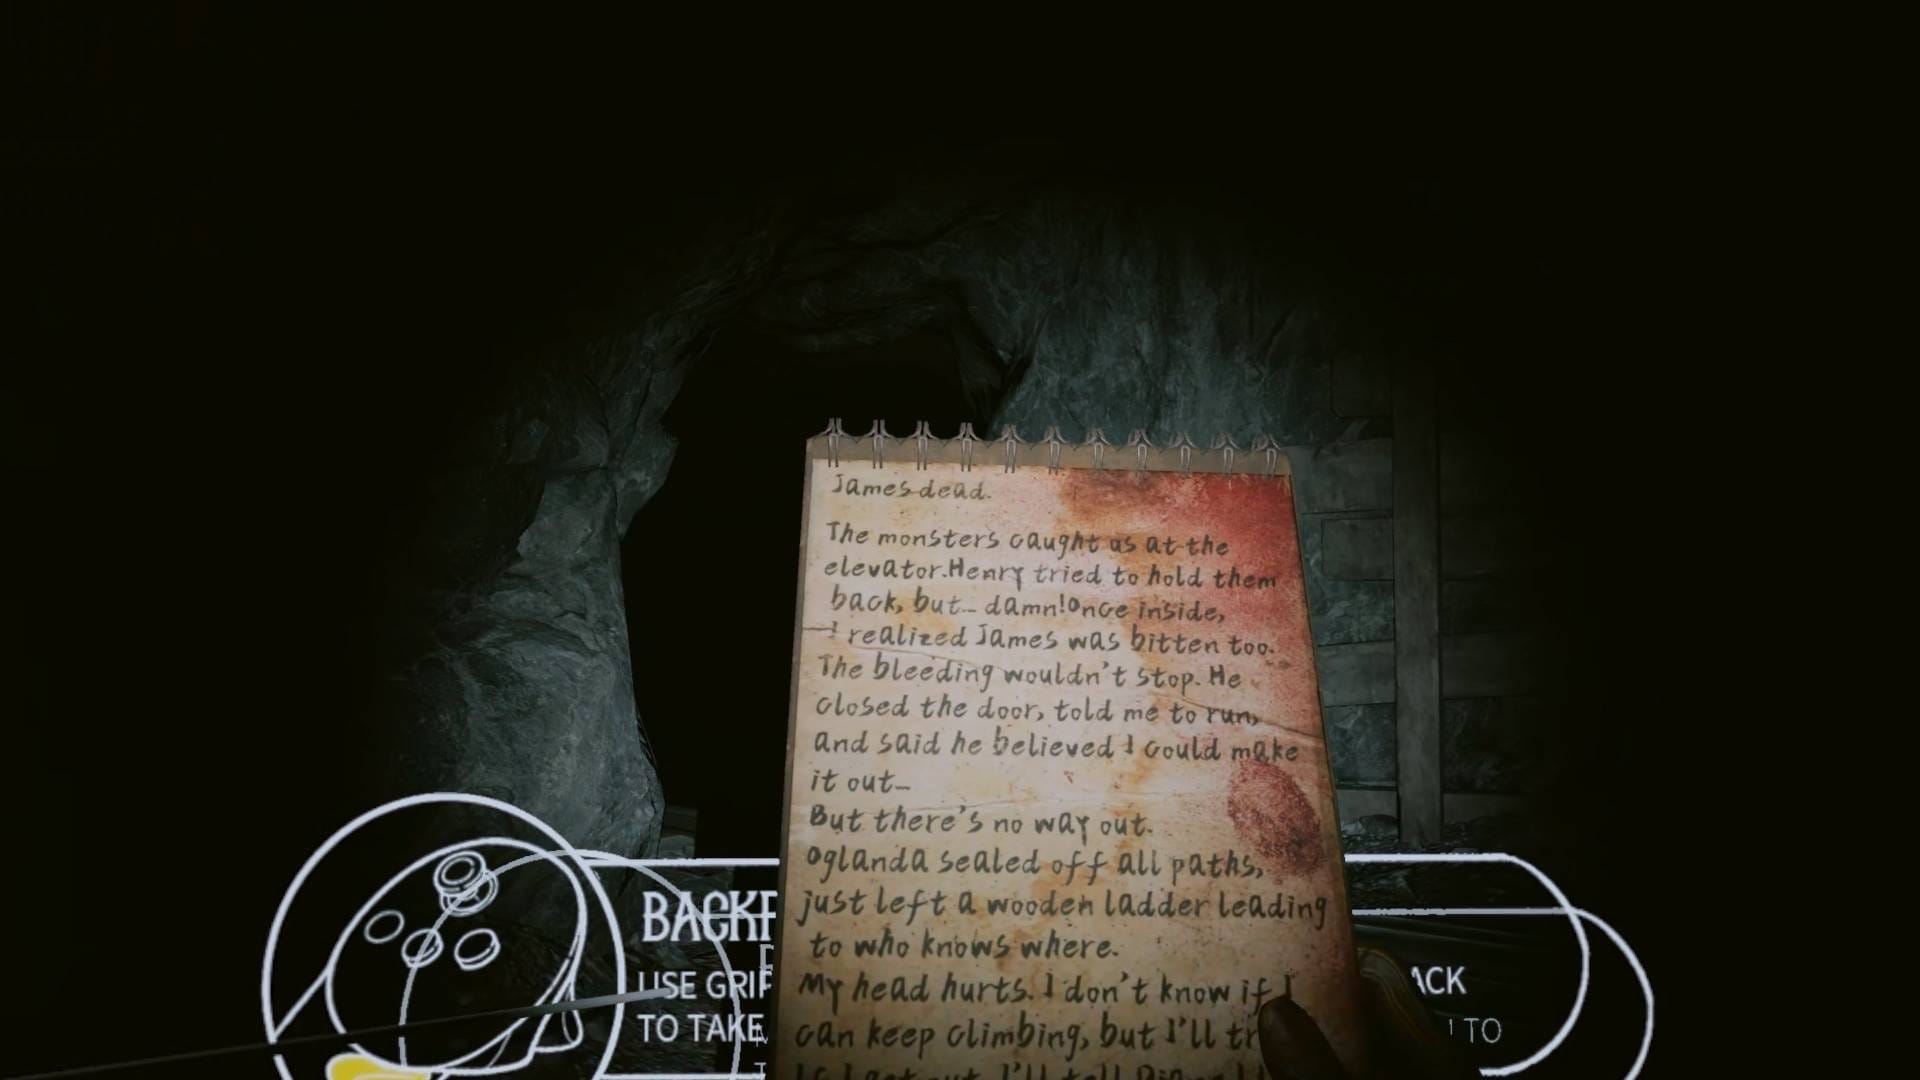 James dead.
The monsters caught us at the
elevator.Henry tried to hold them
back, but... damn!Once inside,
I realized James was bitten too.
The bleeding wouldn't stop. He
closed the door, told me to run,
and said he believed I could make
it out...
But there's no way out.
Oglanda sealed off all paths,
just left a wooden ladder leading
to who knows where.
My head hurts. I don't know if I
can keep climbing, but I'll
If I get out, I'll tell
USE GRIP
TO TAKE
TO